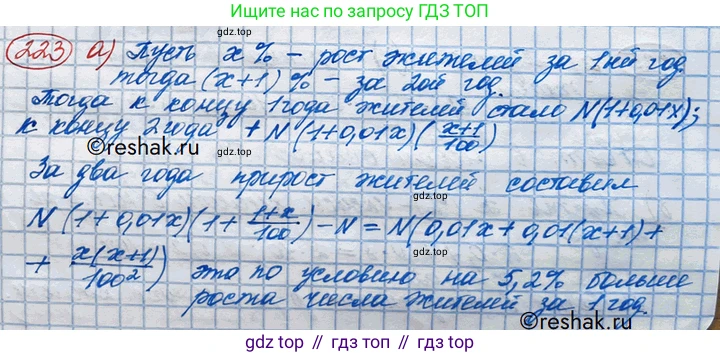 Ищите нас по запросу ГДЗ ТОП
223 а) Пусть x % – рост жителей за 1ый год
тогда (x+1) % – за 2ой год.
Тогда к концу 1 года жителей стало N(1+0,01x);
к концу 2 года + N (1+0,01x) (x+1/100)
©reshak.ru
За два года прирост жителей составил
N (1+0,01x)(1+ 1+x/100) – N = N(0,01x + 0,01(x+1) +
+ x(x+1)/100²) это по условию на 5,2% больше
роста числа жителей за 1 год.
©reshak.ru
gdz.top // gdz.top // gdz.top // gdz.top // gdz.top